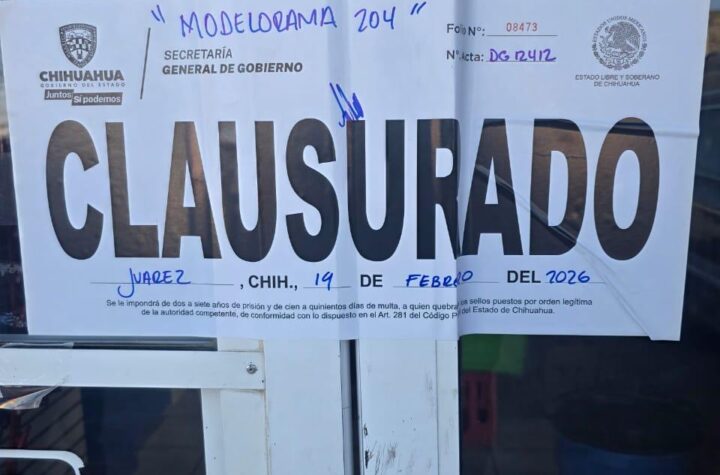 "MODELORAMA 204"
Folio Nº: 08473
CHIHUAHUA
GOBIERNO DEL ESTADO
Juntos Sí podemos
SECRETARÍA
GENERAL DE GOBIERNO
Nº. Acta: DG 12412
ESTADO LIBRE Y SOBERANO
DE CHIHUAHUA
CLAUSURADO
JUAREZ, CHIH., 19 DE FEBRERO DEL 2026
Se le impondrá de dos a siete años de prisión y de cien a quinientos días de multa, a quien quebra sellos puestos por orden legítima
de la autoridad competente, de conformidad con lo dispuesto en el Art. 281 del Código del Estado de Chihuahua.